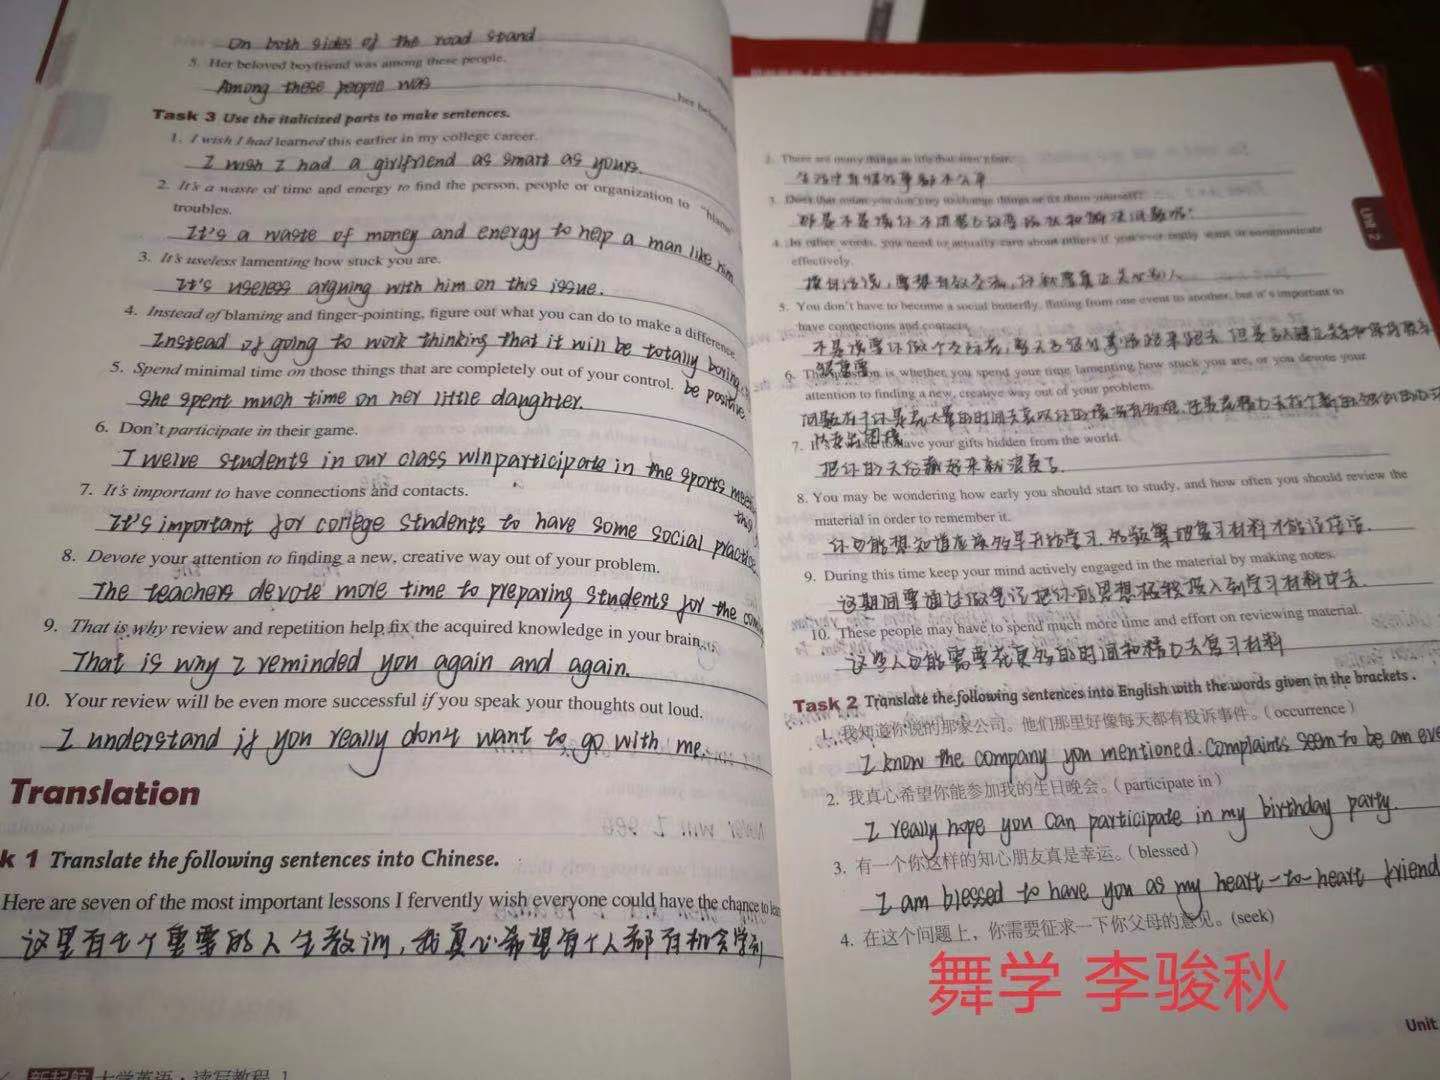 On both sides of the road stand
5. Her beloved boyfriend was among these people.
Among these people was
her beloved
Task 3 Use the italicized parts to make sentences.
1. I wish I had learned this earlier in my college career.
I wish I had a girlfriend as smart as yours.
2. It's a waste of time and energy to find the person, people or organization to "blame"
troubles.
It's a waste of money and energy to help a man like him
3. It's useless lamenting how stuck you are.
It's useless arguing with him on this issue.
4. Instead of blaming and finger-pointing, figure out what you can do to make a difference.
Instead of going to work thinking that it will be totally boring,
be positive.
5. Spend minimal time on those things that are completely out of your control.
She spent much time on her little daughter.
6. Don't participate in their game.
Twelve students in our class will participate in the sports meeting
this
7. It's important to have connections and contacts.
It's important for college students to have some social practice
8. Devote your attention to finding a new, creative way out of your problem.
The teachers devote more time to preparing students for the
9. That is why review and repetition help fix the acquired knowledge in your brain.
That is why I reminded you again and again.
10. Your review will be even more successful if you speak your thoughts out loud.
I understand if you really don't want to go with me.
Translation
k 1 Translate the following sentences into Chinese.
Here are seven of the most important lessons I fervently wish everyone could have the chance to
这里有七个重要的人生教训，我真心希望每个人都有机会学到
新起航 大学英语·读写教程 1
2. There are many things in life that aren't fair.
生活中有很多事都不公平
3. Does that mean you don't try to change things or fix them yourself?
那是不是说你不用努力改变现状和解决问题呢?
4. In other words, you need to actually care about others if you ever really want to communicate
effectively.
换句话说，要想有效交流，你就需真正关心别人
5. You don't have to become a social butterfly, flitting from one event to another, but it's important to
have connections and contacts.
不是说要你做个交际花，整天 跑来跑去 但是 建立关系和保持联系
很重要
6. The question is whether you spend your time lamenting how stuck you are, or you devote your
attention to finding a new, creative way out of your problem.
问题在于你是花大量的时间去哀叹你的 还是花精力去找个新的
7. have your gifts hidden from the world.
把你的天份藏起来就浪费了.
8. You may be wondering how early you should start to study, and how often you should review the
material in order to remember it.
你可能想知道应该多早开始学习，多频繁地复习材料才能记住它.
9. During this time keep your mind actively engaged in the material by making notes.
这期间要通过做笔记把你的思想积极投入到学习材料中去.
10. These people may have to spend much more time and effort on reviewing material.
这些人可能需要花更多的时间和精力去复习材料
Task 2 Translate the following sentences into English with the words given in the brackets.
1. 我知道你说的那家公司。他们那里好像每天都有投诉事件。（occurrence）
I know the company you mentioned. Complaints seem to be an
2. 我真心希望你能参加我的生日晚会。（participate in）
I really hope you can participate in my birthday party.
3. 有一个你这样的知心朋友真是幸运。（blessed）
I am blessed to have you as my heart-to-heart friend
4. 在这个问题上，你需要征求一下你父母的意见。(seek)
舞学 李骏秋
Unit
UNIT 2